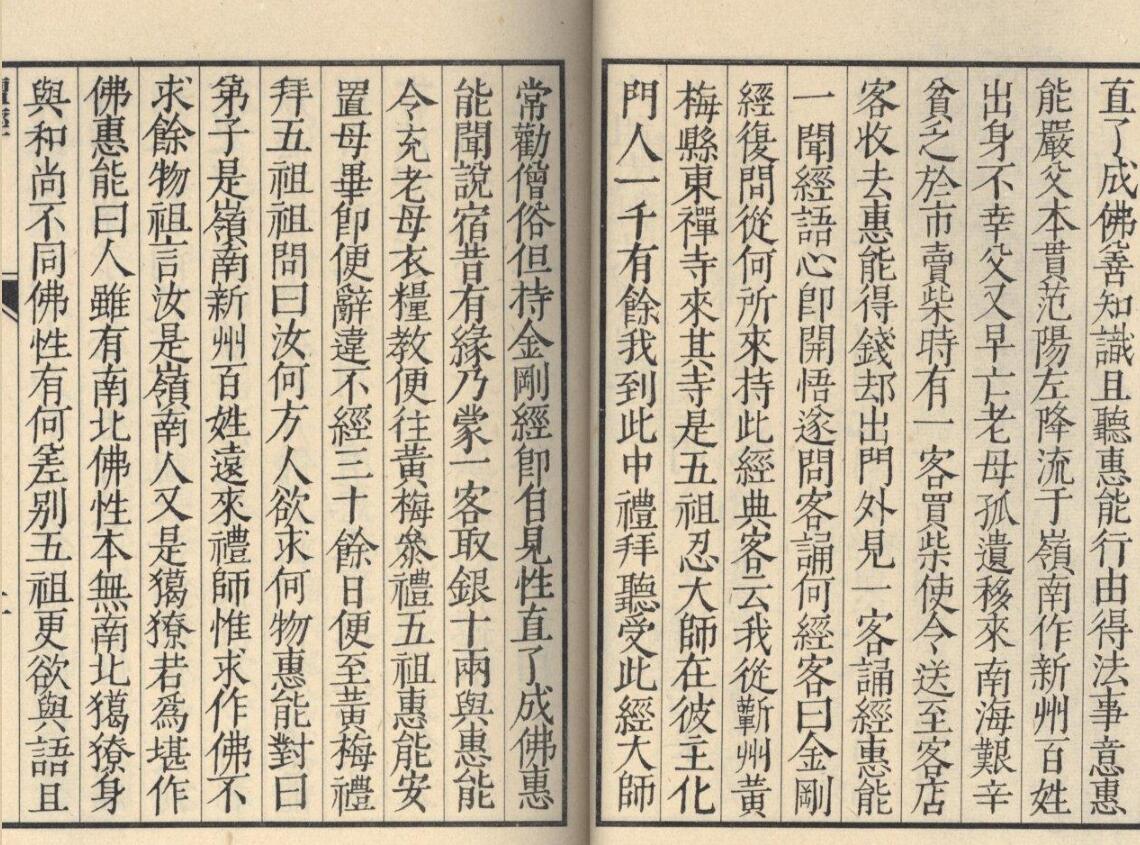 直了成佛善知識且聽惠能行由得法事意惠
能嚴父本貫范陽左降流于嶺南作新州百姓
出身不幸父又早亡老母孤遺移來南海艱辛
貧乏於市賣柴時有一客買柴使令送至客店
客收去惠能得錢却出門外見一客誦經惠能
一聞經語心卽開悟遂問客誦何經客曰金剛
經復問從何所來持此經典客云我從蘄州黃
梅縣東禪寺來其寺是五祖忍大師在彼主化
門人一千有餘我到此中禮拜聽受此經大師
常勸僧俗但持金剛經卽自見性直了成佛惠
能聞說宿昔有緣乃蒙一客取銀十兩與惠能
令充老母衣糧教便往黃梅叅禮五祖惠能安
置母畢卽便辭違不經三十餘日便至黃梅禮
拜五祖祖問曰汝何方人欲求何物惠能對曰
弟子是嶺南新州百姓遠來禮師惟求作佛不
求餘物祖言汝是嶺南人又是獦獠若爲堪作
佛惠能曰人雖有南北佛性本無南北獦獠身
與和尚不同佛性有何差别五祖更欲與語且